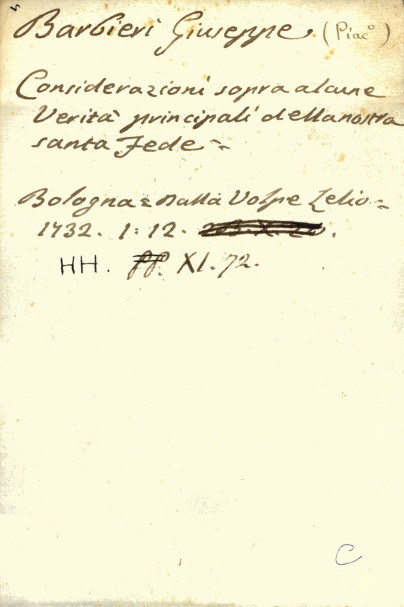 Barbieri Giuseppe (Piac°)
Considerazioni sopra alcune
Verità principali della nostra
santa Fede =
Bologna = Dalla Volpe Lelio =
1732. 1: 12.
HH. XI. 72.
C